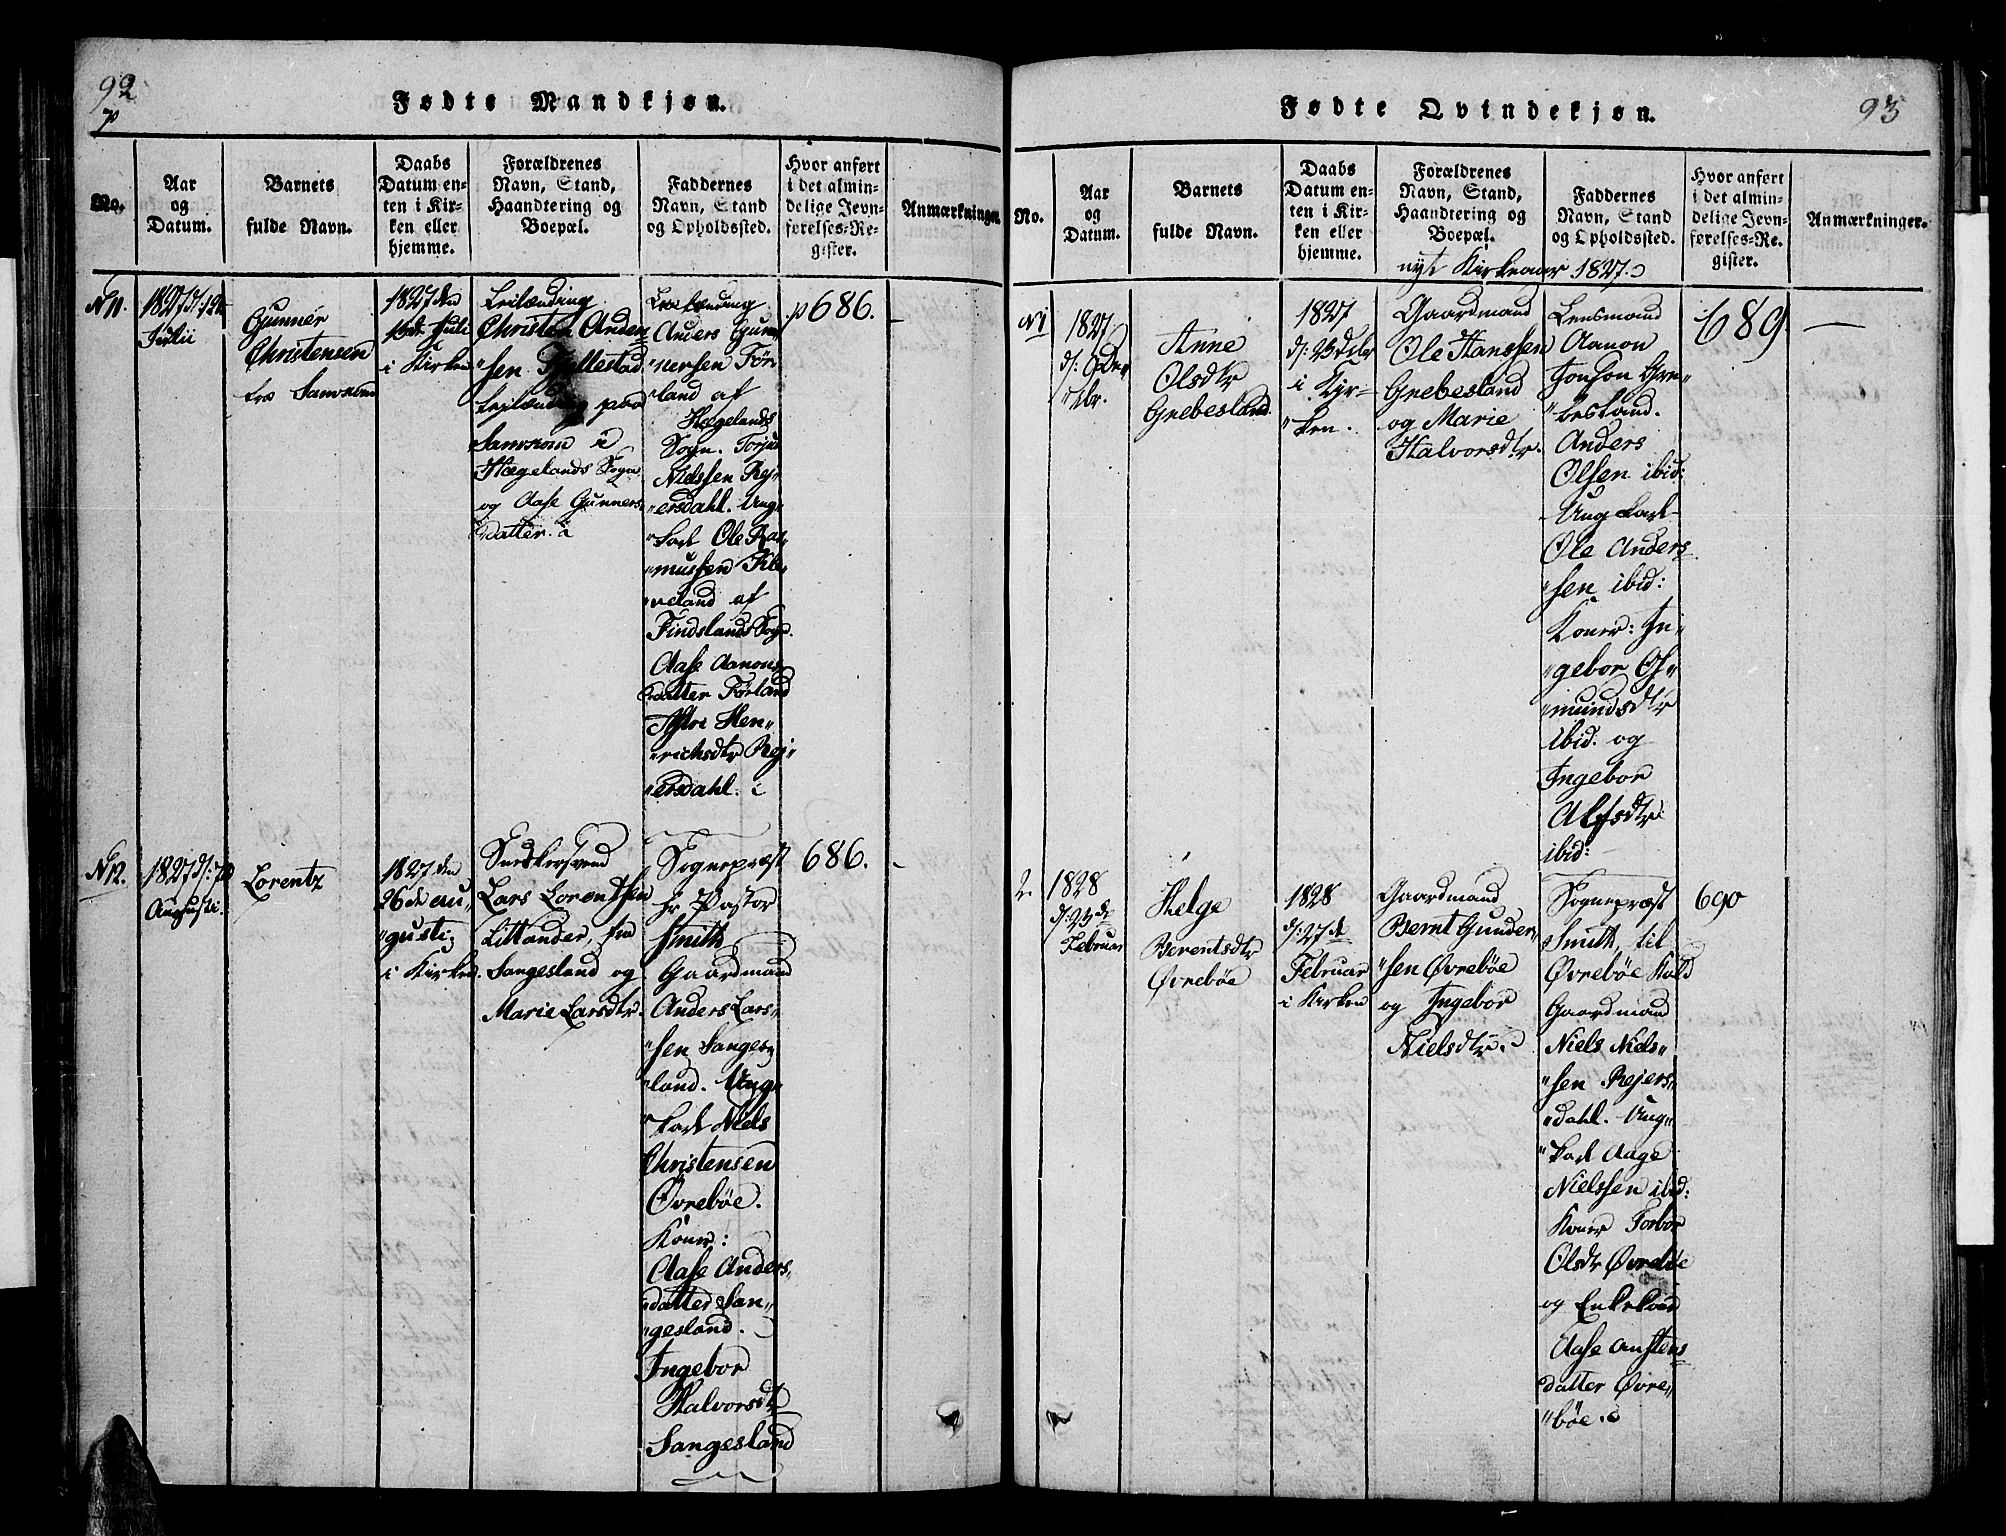 92
Fødte Mandkjøn.
No.
Aar
og
Datum.
Barnets
fulde Navn.
Daabs
Datum en-
ten i Kir-
ken eller
hjemme.
Forældrenes
Navn, Stand,
Haandtering og
Boepæl.
Faddernes
Navn, Stand
og Opholdssted.
Hvor anført
i det almin-
delige Jevn-
førelses-Re-
gister.
Anmærkninger.
N 11.
1827 d: 12te
Julii
Gunner
Christensen
fra
1827 den
i Kirken
Leilænding
Christen Anden
"sen Fjellestad
Leilænding paa
i
Hægelands Sogn
og Aase Gunners
datter.
Leilænding
Anders Gun
"nersen Før
"land af
Hægelands
Sogn. Torjus
Nielssen Rej
"ersdahl. Ung
"karl Ole Ras
"mussen Kle
"veland af
Findslands Sogn.
Aase Aanons
datter Førland
Hen
"richsdtr Rej"
"ersdahl.
p 686.
N 12.
1827 d: 7de
Augusti.
Lorentz
1827 den
26de Au"
"gusti
i Kirken.
Snedkersvend
Lars Lorentsen
Littander, fra
Sangesland og
Marie Larsdtr.
Sognepræst
Hr Pastor
Smith
Gaardmand
Anders Lars"
"sen Sanges
"land. Ung"
"karl Niels
Christensen
Øvrebøe.
Koner:
Aase Anders
datter San"
"gesland.
Ingebor
Halvorsdtr
Sangesland
686.
93
Fødte Qvindekjøn.
No.
Aar
og
Datum.
Barnets
fulde Navn.
Daabs
Datum en-
ten i Kir-
ken eller
hjemme.
Forældrenes
Navn, Stand,
Haandtering og
Boepæl.
Faddernes
Navn, Stand
og Opholdssted.
Hvor anført
i det almin-
delige Jevn-
førelses-Re-
gister.
Anmærkninger.
nyt Kirkeaar 1827.
N 1
1827
Anne
Olsdtr
Grebesland.
1827
d: 23 dcbr
i Kir"
"ken.
Gaardmand
Ole Hanssen
Grebesland
og Marie
Halvorsdtr.
Lensmand
Aanon
Jonson Gre"
"besland.
Anders
Olsen ibid:
Ung karl
Ole Anders
"sen ibid:
Koner: In"
"gebor Os"
"mundsdtr
ibid. og
Ingebor
Alfsdtr
ibid:
689
2.
1828
d: 23de
Februar
Helge
Berentsdtr
Øvrebøe
1828
d: 27de
Februar
i Kirken
Gaardmand
Bernt Gunder"
"sen Øvrebøe
og Ingebor
Nielsdtr.
Sognepræst
Smith, til
Øvrebøe Kald
Gaardmand
Niels Niels"
"sen Rejers"
"dahl. Ung"
"karl Aage
Nielssen ibid:
Koner Torbor
Olsdtr Øvrebøe
og Enkekone
Aase Anstens
datter Øvre"
"bøe.
690